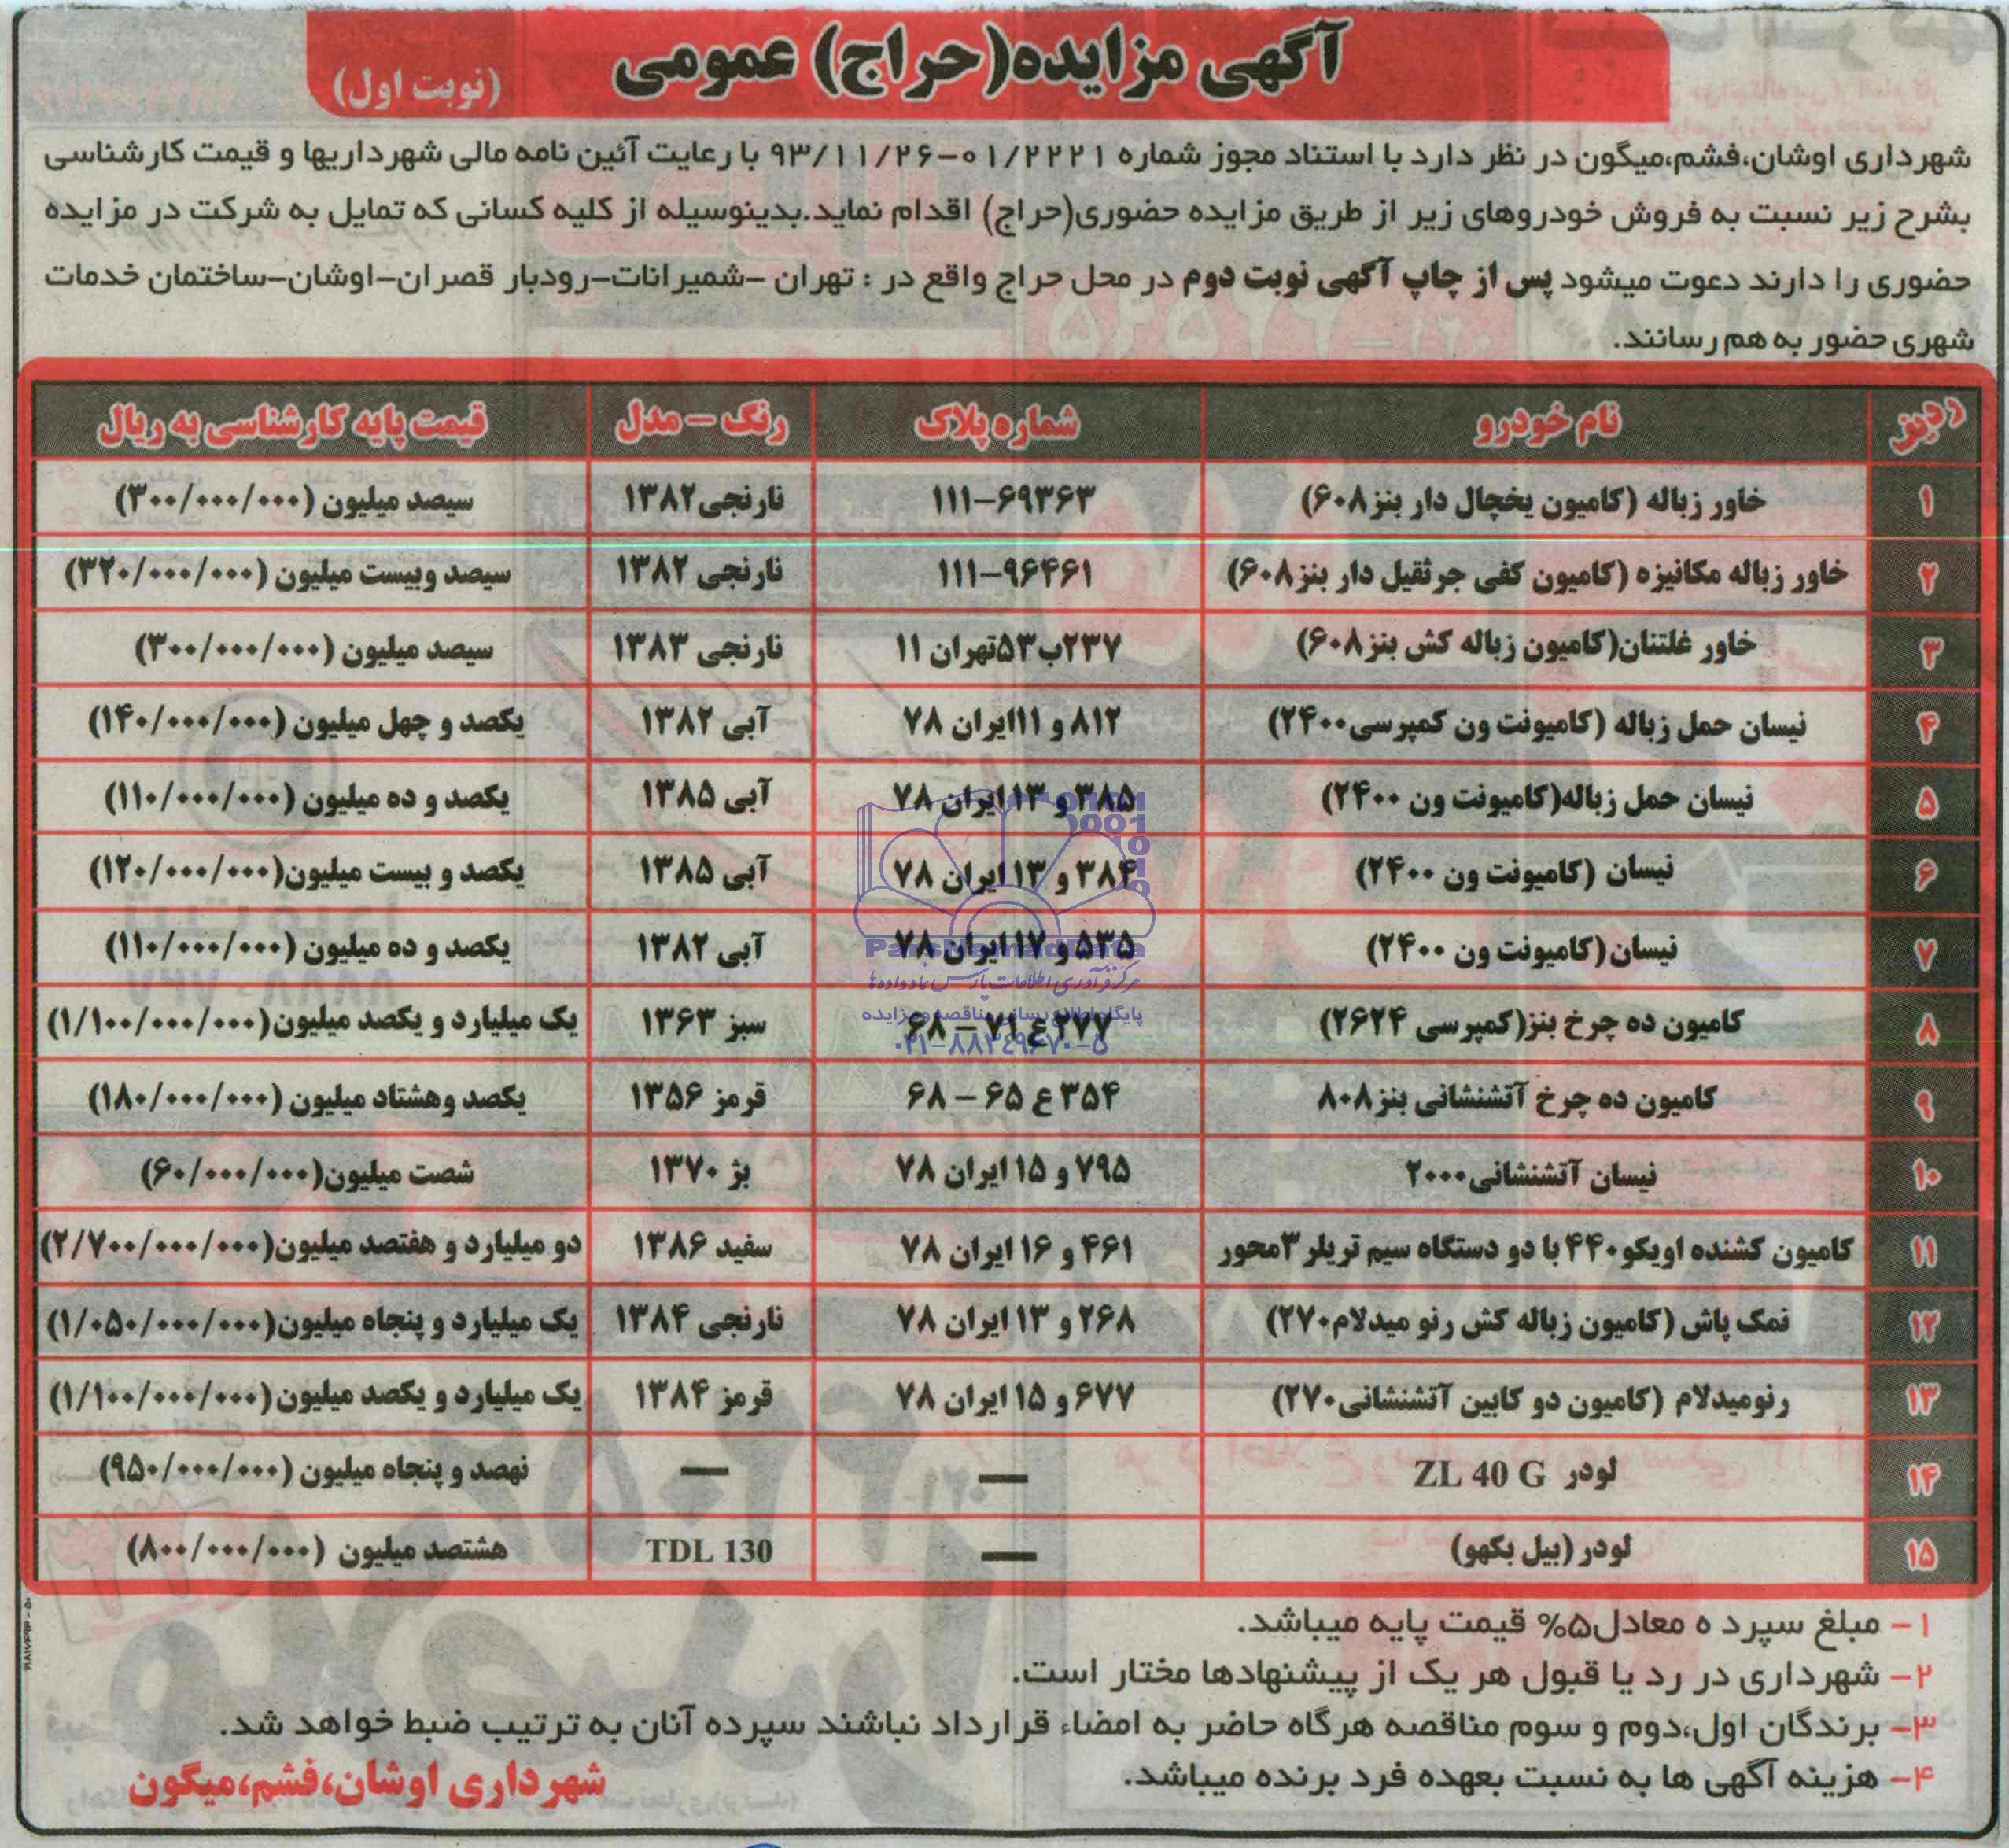 آگهی مزایده(حراج) عمومی
(نوبت اول)
شهرداری اوشان،فشم،میگون در نظر دارد با استناد مجوز شماره ۰۱/۲۲۲۱-۹۳/۱۱/۲۶ با رعایت آئین نامه مالی شهرداریها و قیمت کارشناسی
بشرح زیر نسبت به فروش خودروهای زیر از طریق مزایده حضوری(حراج) اقدام نماید.بدینوسیله از کلیه کسانی که تمایل به شرکت در مزایده
حضوری را دارند دعوت میشود پس از چاپ آگهی نوبت دوم در محل حراج واقع در : تهران -شمیرانات-رودبار قصران-اوشان-ساختمان خدمات
شهری حضور به هم رسانند.
ردیف نام خودرو شماره پلاک رنگ - مدل قیمت پایه کارشناسی به ریال
۱ خاور زباله (کامیون یخچال دار بنز۶۰۸) ۶۹۳۶۳-۱۱۱ نارنجی۱۳۸۲ سیصد میلیون (۳۰۰/۰۰۰/۰۰۰)
۲ خاور زباله مکانیزه (کامیون کفی جرثقیل دار بنز۶۰۸) ۹۶۴۶۱-۱۱۱ نارنجی ۱۳۸۲ سیصد وبیست میلیون (۳۲۰/۰۰۰/۰۰۰)
۳ خاور غلتنان(کامیون زباله کش بنز۶۰۸) ۲۳۷ب۵۳تهران ۱۱ نارنجی ۱۳۸۳ سیصد میلیون (۳۰۰/۰۰۰/۰۰۰)
۴ نیسان حمل زباله (کامیونت ون کمپرسی۲۴۰۰) ۸۱۲ و ۱۱ایران ۷۸ آبی ۱۳۸۲ یکصد و چهل میلیون (۱۴۰/۰۰۰/۰۰۰)
۵ نیسان حمل زباله(کامیونت ون ۲۴۰۰) ۳۸۵ و ۱۳ایران ۷۸ آبی ۱۳۸۵ یکصد و ده میلیون (۱۱۰/۰۰۰/۰۰۰)
۶ نیسان (کامیونت ون ۲۴۰۰) ۳۸۴ و ۱۳ ایران ۷۸ آبی ۱۳۸۵ یکصد و بیست میلیون(۱۲۰/۰۰۰/۰۰۰)
۷ نیسان(کامیونت ون ۲۴۰۰) ۵۳۵ و ۱۷ ایران ۷۸ آبی ۱۳۸۲ یکصد و ده میلیون (۱۱۰/۰۰۰/۰۰۰)
ParsNamadData
مرکز فرآوری اطلاعات پارس نماد داده ها
۸ کامیون ده چرخ بنز(کمپرسی ۲۶۲۴) ۲۷۷ ع ۷۱ - ۶۸ سبز ۱۳۶۳ یک میلیارد و یکصد میلیون(۱/۱۰۰/۰۰۰/۰۰۰)
پایگاه اطلاع رسانی مناقصه و مزایده
۰۲۱-۸۸۳۴۹۶۷۰-۵
۹ کامیون ده چرخ آتشنشانی بنز۸۰۸ ۳۵۴ ع ۶۵ - ۶۸ قرمز ۱۳۵۶ یکصد وهشتاد میلیون (۱۸۰/۰۰۰/۰۰۰)
۱۰ نیسان آتشنشانی۲۰۰۰ ۷۹۵ و ۱۵ ایران ۷۸ بژ ۱۳۷۰ شصت میلیون(۶۰/۰۰۰/۰۰۰)
۱۱ کامیون کشنده اویکو۴۴۰ با دو دستگاه سیم تریلر ۳محور ۴۶۱ و ۱۶ ایران ۷۸ سفید ۱۳۸۶ دو میلیارد و هفتصد میلیون(۲/۷۰۰/۰۰۰/۰۰۰)
۱۲ نمک پاش (کامیون زباله کش رنو میدلام۲۷۰) ۲۶۸ و ۱۳ ایران ۷۸ نارنجی ۱۳۸۴ یک میلیارد و پنجاه میلیون(۱/۰۵۰/۰۰۰/۰۰۰)
۱۳ رنومیدلام (کامیون دو کابین آتشنشانی۲۷۰) ۶۷۷ و ۱۵ ایران ۷۸ قرمز ۱۳۸۴ یک میلیارد و یکصد میلیون(۱/۱۰۰/۰۰۰/۰۰۰)
۱۴ لودر ZL 40 G — — نهصد و پنجاه میلیون (۹۵۰/۰۰۰/۰۰۰)
۱۵ لودر (بیل بکهو) — TDL 130 هشتصد میلیون (۸۰۰/۰۰۰/۰۰۰)
۱- مبلغ سپرد ه معادل۵% قیمت پایه میباشد.
۲- شهرداری در رد یا قبول هر یک از پیشنهادها مختار است.
۳- برندگان اول،دوم و سوم مناقصه هرگاه حاضر به امضاء قرارداد نباشند سپرده آنان به ترتیب ضبط خواهد شد.
۴- هزینه آگهی ها به نسبت بعهده فرد برنده میباشد.
شهرداری اوشان،فشم،میگون